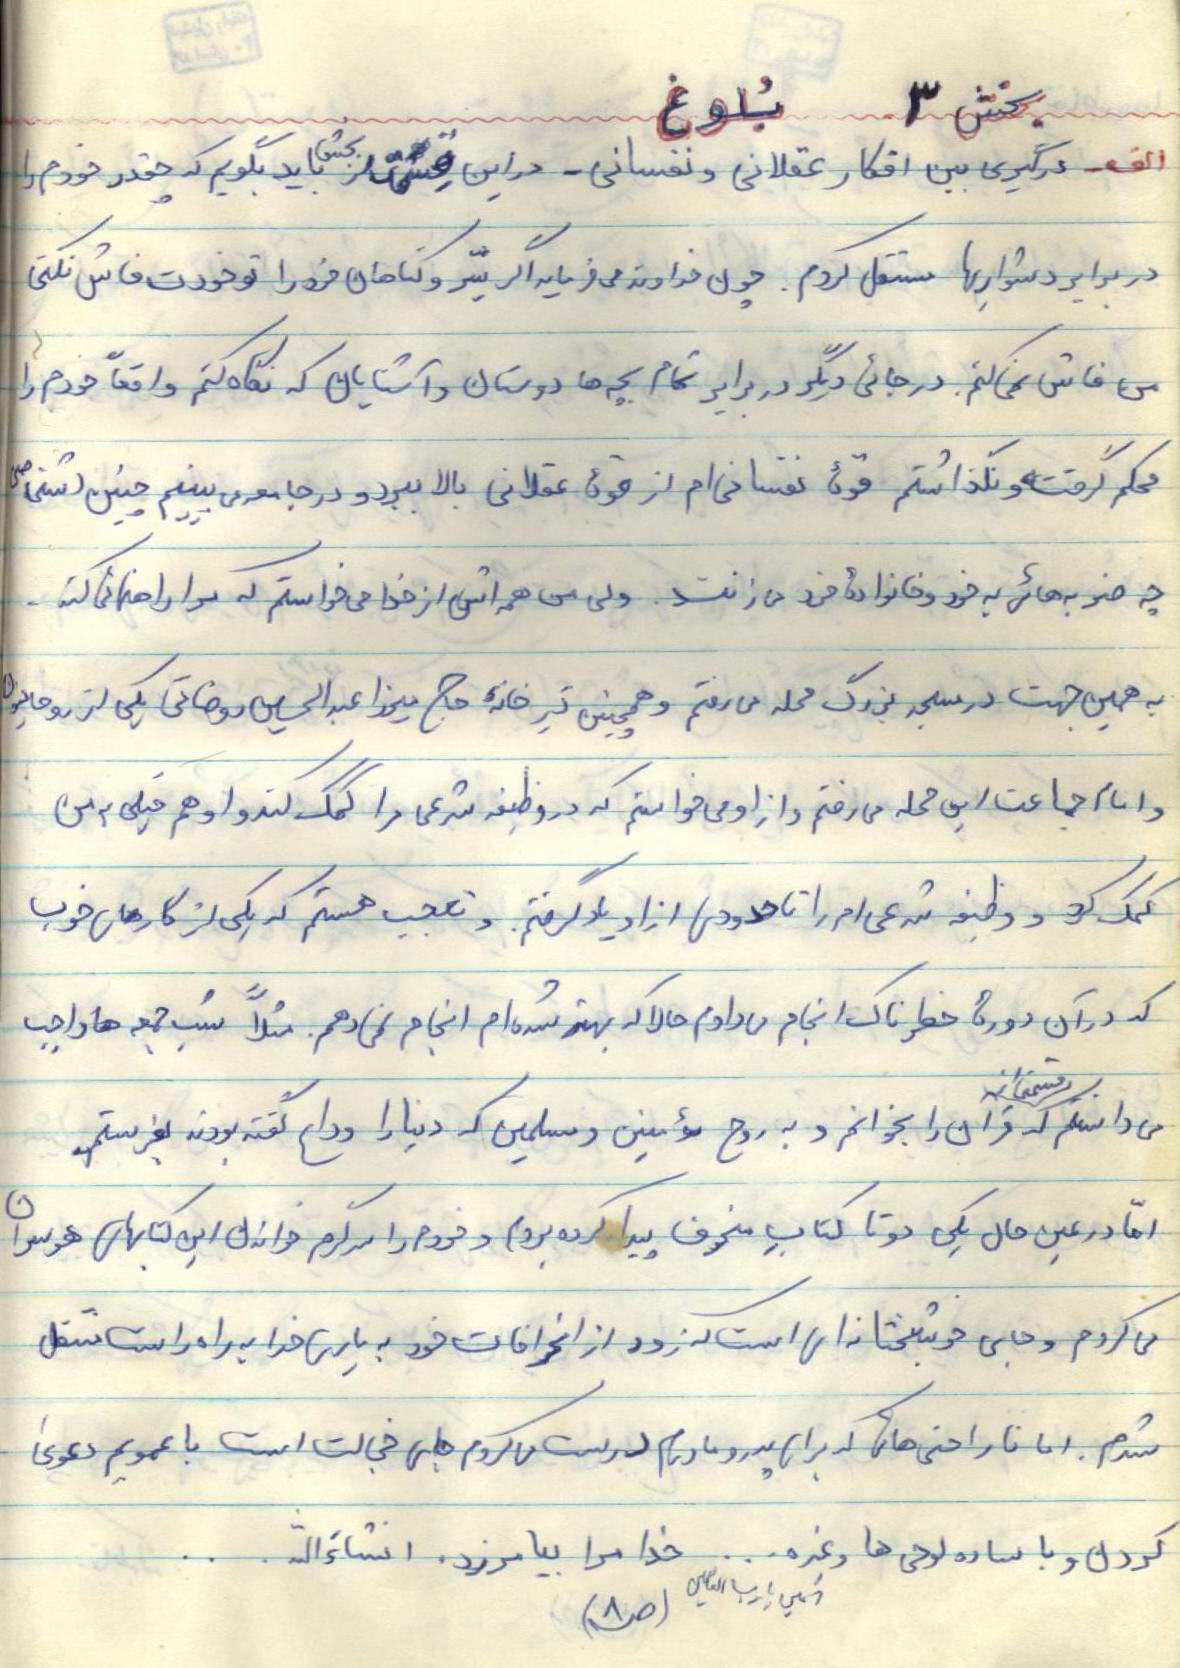 بخش ۳ بلوغ
الف - درگیری بین افکار عقلانی و نفسانی - در این قسمت از بخش باید بگویم که چقدر خودم را
در برابر دشواریها مستقل کردم. چون خداوند می فرماید اگر سِّر و گناهان خود را تو خودت فاش نکنی
من فاش نمی کنم. در جائی دیگر در برابر تمام بچه ها دوستان و آشنایان که نگاه کنم واقعاً خودم را
محکم گرفته و نگذاشتم قوۀ نفسانی ام از قوۀ عقلانی بالا ببرد و در جامعه می بینیم چنین اشخاصی
چه ضربه هائی به خود و خانوادۀ خود می زنند. ولی من همه اش از خدا می خواستم که مرا راهنمائی کند.
به همین جهت در مسجد بزرگ محله می رفتم و همچنین در خانۀ حاج میرزا عبدالحسین روضاتی یکی از روحانیون
و امام جماعت این محله می رفتم و از او می خواستم که در وظیفه شرعی مرا کمک کند و او هم خیلی به من
کمک کرد و وظیفه شرعی ام را تا حدودی از او یاد گرفتم. و تعجب هستم که یکی از کارهای خوب
که در آن دورۀ خطرناک انجام می دادم حالا که بهتر شده ام انجام نمی دهم. مثلاً شب جمعه ها واجب
می دانستم که قسمتی از قرآن را بخوانم و به روح مؤمنین و مسلمین که دنیا را وداع گفته بودند بفرستم
امّا در عین حال یکی دوتا کتاب منحرف پیدا کرده بودم و خودم را سرگرم خواندن این کتابهای هوسران
می کردم و جای خوشبختانه ای است که زود از انحرافات خود به یاری خدا به راه راست منتقل
شدم. اما ناراحتی هائی که برای پدر و مادرم درست می کردم جای خجالت است با عمویم دعویٰ
کردن و با ساده لوحی ها و غیره... خدا مرا بیامرزد. انشاءالله. . . .
آمین یا رب العالمین
(ص ۸)